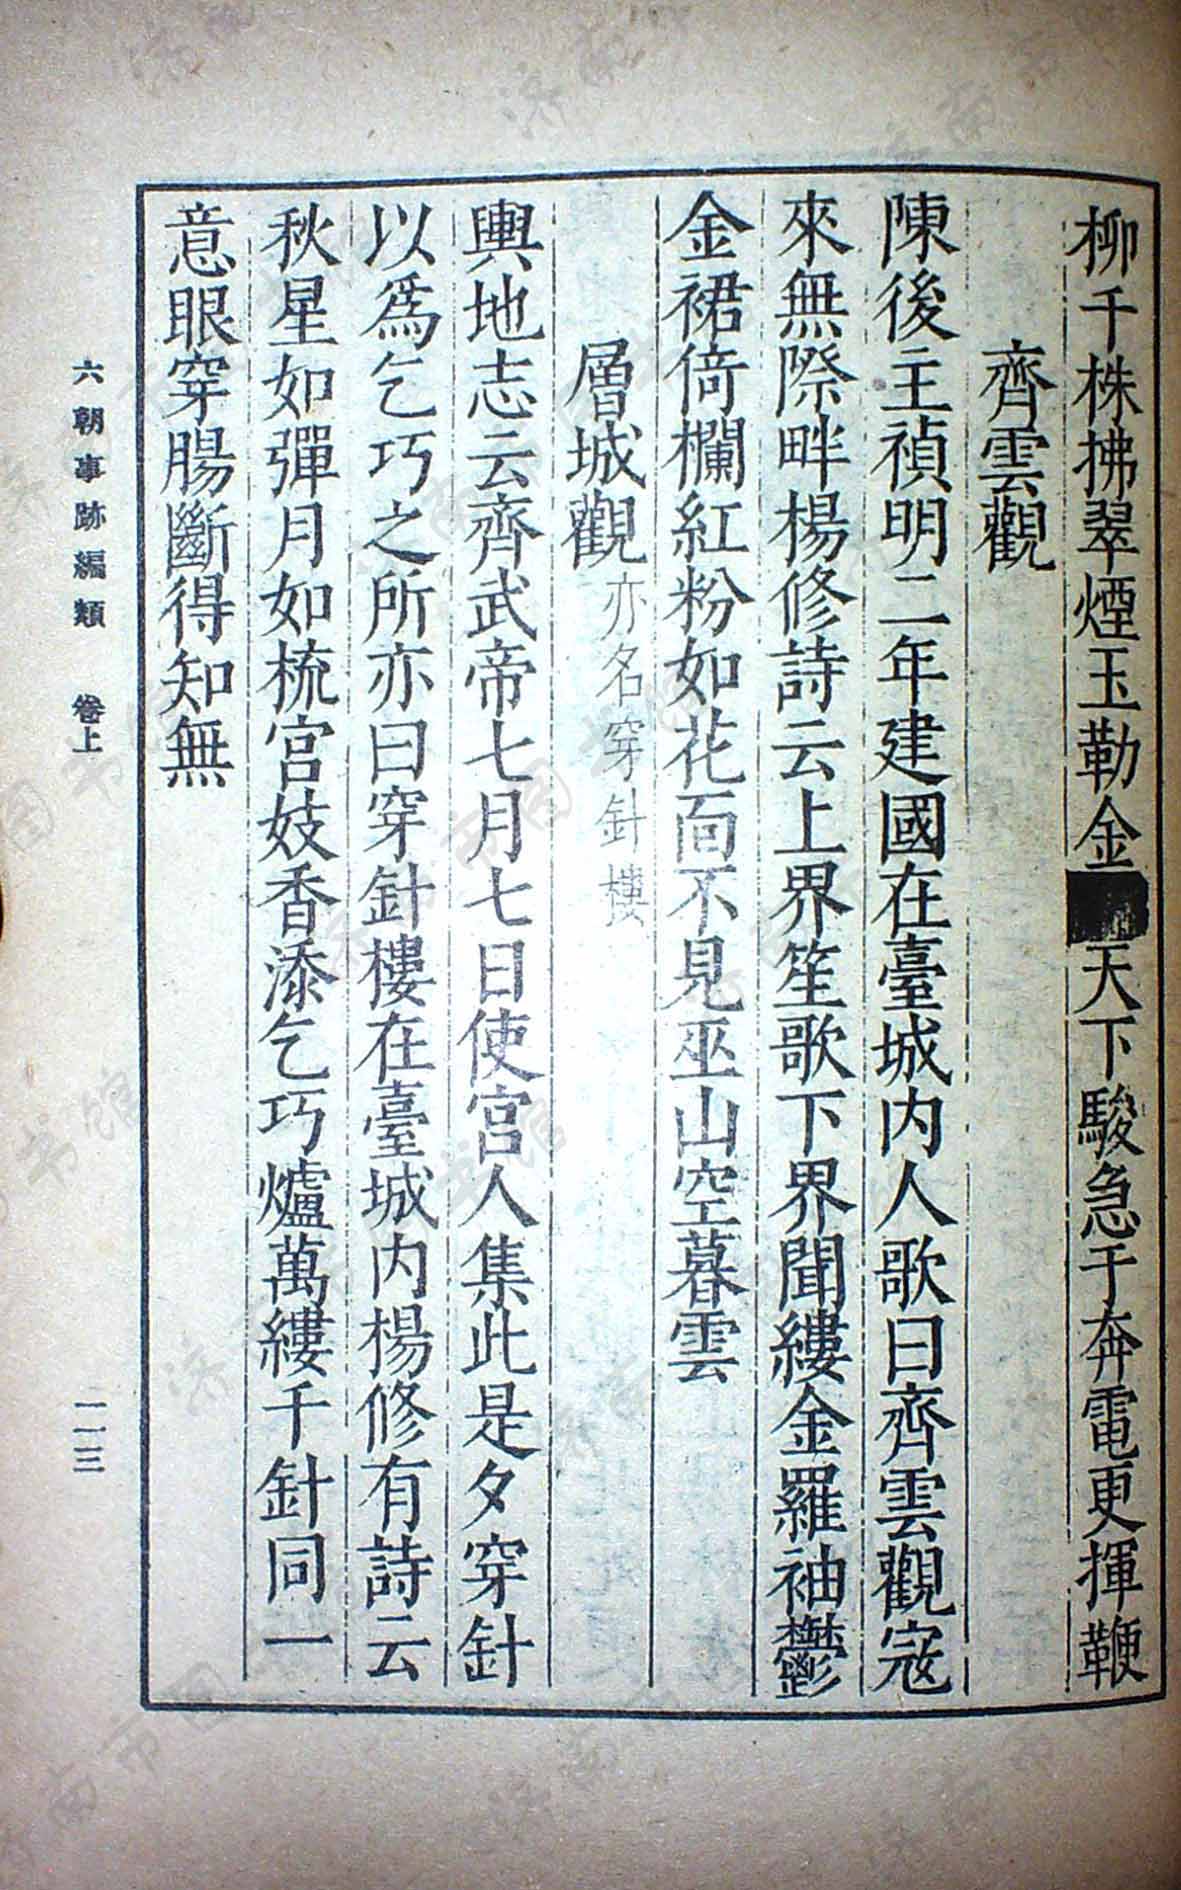 柳千株拂翠煙玉勒金天下駿急于奔電更揮鞭
齊雲觀
陳後主禎明二年建國在臺城内人歌曰齊雲觀寇
來無際畔楊修詩云上界笙歌下界聞縷金羅袖鬱
金裙倚欄紅粉如花面不見巫山空暮雲
層城觀亦名穿針樓
輿地志云齊武帝七月七日使宮人集此是夕穿針
以爲乞巧之所亦曰穿針樓在臺城内楊修有詩云
秋星如彈月如梳宮妓香添乞巧爐萬縷千針同一
意眼穿腸斷得知無
六朝事跡編類 卷上
一一三
济南市图书馆